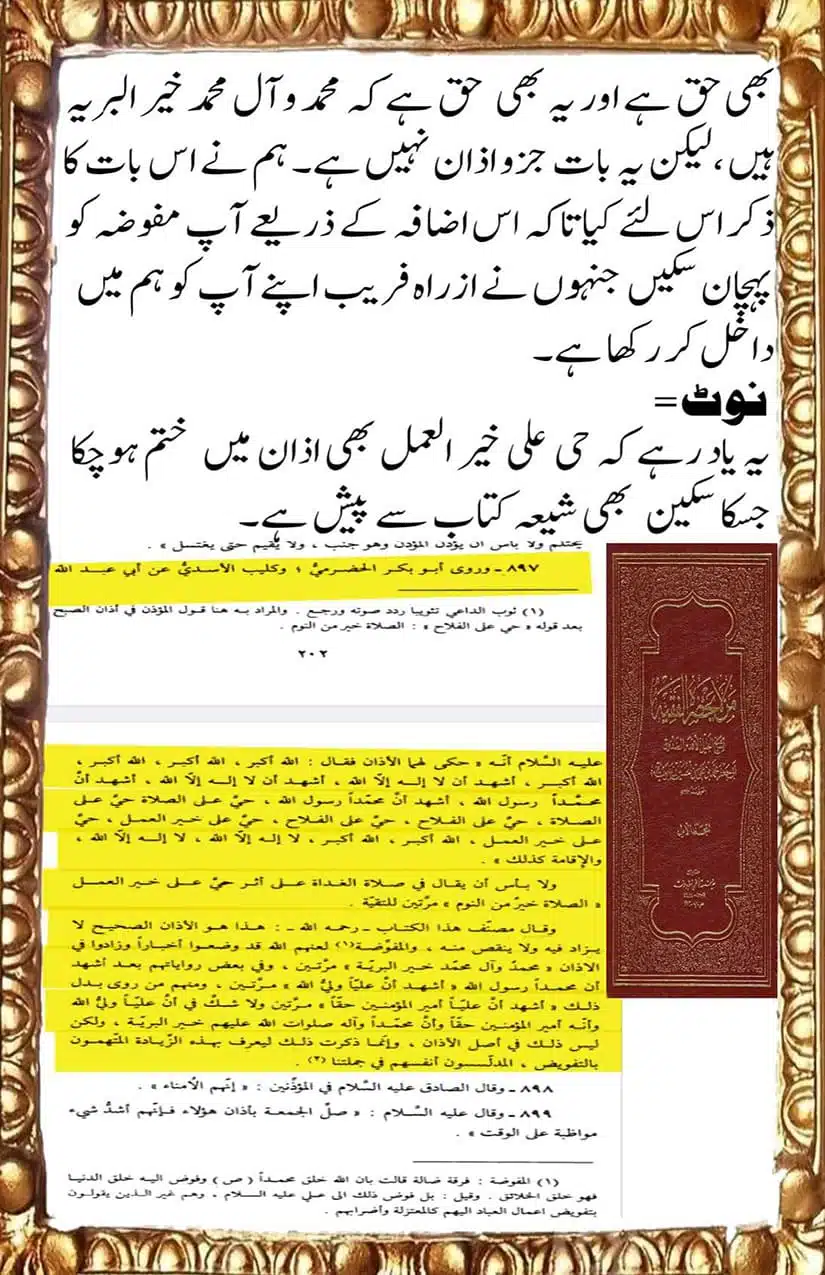 بھی حق ہے اور یہ بھی حق ہے کہ محمد و آل محمد خیر البریہ
ہیں، لیکن یہ بات جزو اذان نہیں ہے۔ ہم نے اس بات کا
ذکر اس لئے کیا تاکہ اس اضافہ کے ذریعے آپ مفوضہ کو
پہچان سکیں جنہوں نے از راہ فریب اپنے آپ کو ہم میں
داخل کر رکھا ہے۔
نوٹ=
یہ یاد رہے کہ حی علی خیر العمل بھی اذان میں ختم ہو چکا
جسکا سکین بھی شیعہ کتاب سے پیش ہے۔
يحتلم ولا بأس أن يؤذن المؤذن وهو جنب ، ولا يقيم حتى يغتسل » .
٨٩٧ ـ وروى أبو بكر الحضرميُّ ؛ وكليب الأسديُّ عن أبي عبد الله
(١) ثوب الداعي تثويبا ردد صوته ورجع . والمراد به هنا قول المؤذن في أذان الصبح
بعد قوله « حي على الفلاح » : الصلاة خير من النوم .
٢٠٢
عليه السلام أنّه « حكى لهما الأذان فقال : الله أكبر ، الله أكبر ، الله أكبر ،
الله أكبر ، أشهد أن لا إله إلّا الله ، أشهد أن لا إله إلّا الله ، أشهد أنَّ
محمّداً رسول الله ، أشهد أنَّ محمّداً رسول الله ، حيَّ على الصلاة حيَّ على
الصلاة ، حيَّ على الفلاح ، حيَّ على الفلاح ، حيَّ على خير العمل ، حيَّ
على خير العمل ، الله أكبر ، الله أكبر ، لا إله إلّا الله ، لا إله إلّا الله ،
والإقامة كذلك » .
ولا بأس أن يقال في صلاة الغداة على أثر حيَّ على خير العمل
« الصلاة خيرٌ من النوم » مرَّتين للتقيّة .
وقال مصنّف هذا الكتاب ـ رحمه الله ـ : هذا هو الأذان الصحيح لا
يزاد فيه ولا ينقص منه ، والمفوّضة(١) لعنهم الله قد وضعوا أخباراً وزادوا في
الأذان « محمدٌ وآل محمّد خير البريّة » مرّتين ، وفي بعض رواياتهم بعد أشهد
أن محمداً رسول الله « أشهد أنّ عليّاً وليُّ الله » مرَّتين ، ومنهم من روى بدل
ذلك « أشهد أنَّ عليّاً أمير المؤمنين حقّاً » مرَّتين ولا شكَّ في أنَّ عليّاً وليُّ الله
وأنّه أمير المؤمنين حقّاً وأنَّ محمّداً وآله صلوات الله عليهم خير البريّة ، ولكن
ليس ذلك في أصل الأذان ، وإنّما ذكرت ذلك ليعرف بهذه الزّيادة المتّهمون
بالتفويض ، المدلّسون أنفسهم في جملتنا (٢) .
٨٩٨ ـ وقال الصادق عليه السلام في المؤذّنين : « إنّهم الأمناء » .
٨٩٩ ـ وقال عليه السلام : « صلّ الجمعة بأذان هؤلاء فإنّهم أشدُّ شيء
مواظبة على الوقت » .
(١) المفوضة : فرقة ضالة قالت بان الله خلق محمداً ( ص ) وفوض اليه خلق الدنيا
فهو خلق الخلائق . وقيل : بل فوض ذلك الى علي عليه السلام ، وهم غير الذين يقولون
بتفويض اعمال العباد اليهم كالمعتزلة وأضرابهم .
من لا يحضره الفقيه